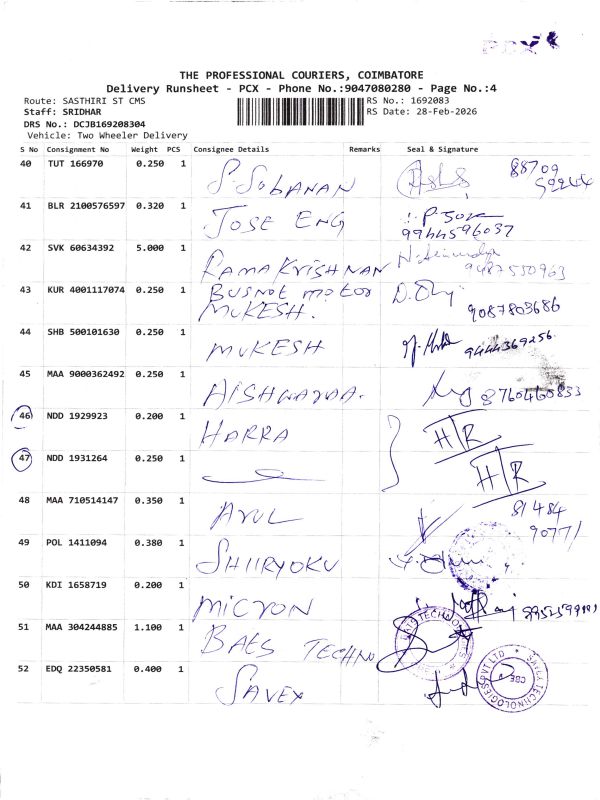 PCX
THE PROFESSIONAL COURIERS, COIMBATORE
Delivery Runsheet - PCX - Phone No.:9047080280 - Page No.:4
Route: SASTHIRI ST CMS
Staff: SRIDHAR
DRS No.: DCJB169208304
Vehicle: Two Wheeler Delivery
RS No.: 1692083
RS Date: 28-Feb-2026
S No Consignment No Weight PCS Consignee Details Remarks Seal & Signature
40 TUT 166970 0.250 1 S. SUBANAN 88709
41 BLR 2100576597 0.320 1 JOSE ENG 9944596037
42 SVK 60634392 5.000 1 RAMAKRISHNAN 9487550963
43 KUR 4001117074 0.250 1 BUSNOT MOTOR MUKESH. 9087803686
44 SHB 500101630 0.250 1 MUKESH 9444369256
45 MAA 9000362492 0.250 1 AISHWARYA. 8760460833
46 NDD 1929923 0.200 1 HARRA H/R
47 NDD 1931264 0.250 1 H/R
48 MAA 710514147 0.350 1 ARUL 81484 90771
49 POL 1411094 0.380 1 SHIIRYOKU
50 KDI 1658719 0.200 1 MICRON
51 MAA 304244885 1.100 1 BAES TECHNO
52 EDQ 22350581 0.400 1 SAVEX